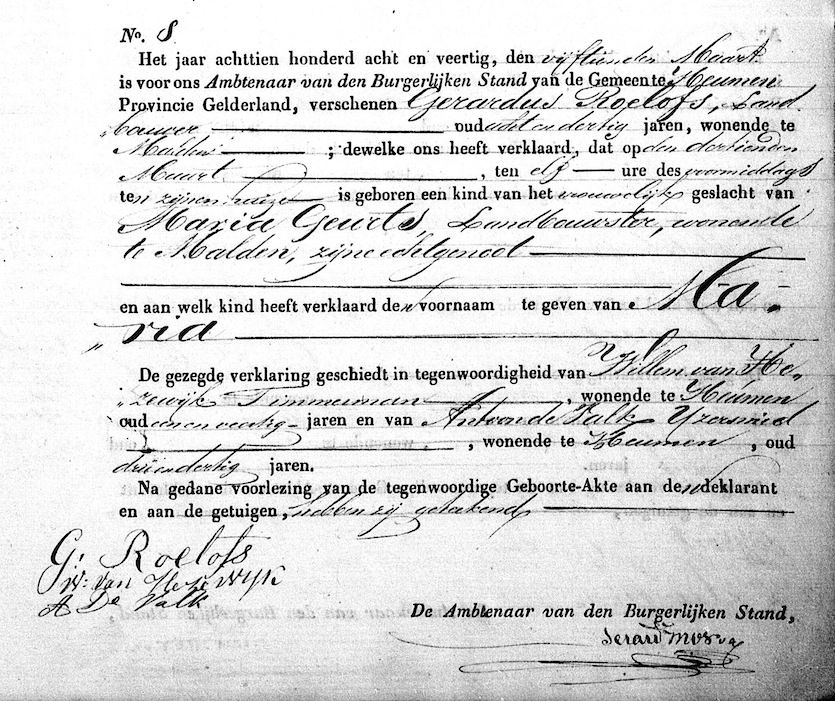 No. 8
Het jaar achttien honderd acht en veertig, den vijftienden Maart
is voor ons Ambtenaar van den Burgerlijken Stand van de Gemeente Heumen
Provincie Gelderland, verschenen Gerardus Roelofs, Land
„bouwer oud acht en dertig jaren, wonende te
Malden ; dewelke ons heeft verklaard, dat op den dertienden
Maart , ten elf ure des voormiddags
ten zijnen huize is geboren een kind van het vrouwelijk geslacht van
Maria Geurts, Landbouwster, wonende
te Malden, zijne echtgenoot
en aan welk kind heeft verklaard den voornaam te geven van Ma-
„ria
De gezegde verklaring geschiedt in tegenwoordigheid van Willem van He-
„zewijk Timmerman , wonende te Heumen
oud een en veertig jaren en van Antoon de Valk Yzersmid
, wonende te Heumen , oud
drie en dertig jaren.
Na gedane voorlezing van de tegenwoordige Geboorte-Akte aan den deklarant
en aan de getuigen, hebben zij getekend
G. Roelofs
W. van Hezewyk
A De Valk
De Ambtenaar van den Burgerlijken Stand,